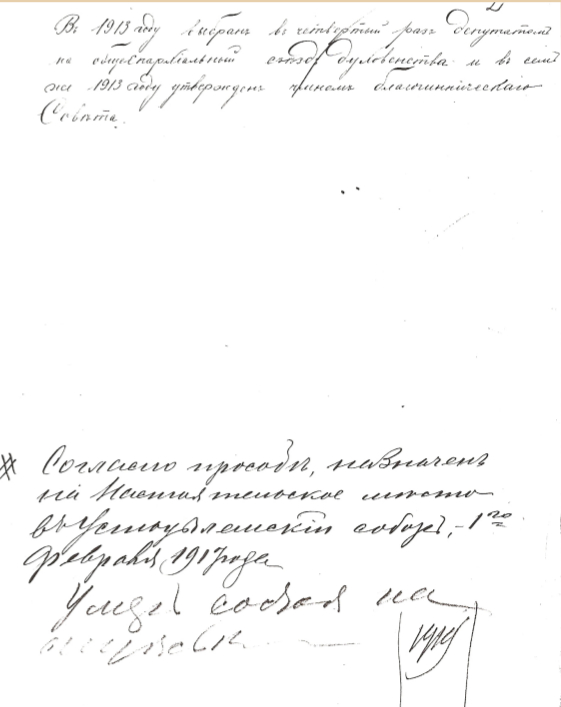 Въ 1913 году выбранъ въ четвертый разъ депутатомъ
на общеепархіальный съѣздъ духовенства и въ семъ
же 1913 году утвержденъ членомъ благочинническаго
Совѣта.
Согласно просьбѣ, назначенъ
на Настоятельское мѣсто
въ Устоуѣлемскій соборъ, - 1го
февраля, 1917 года
на
1919